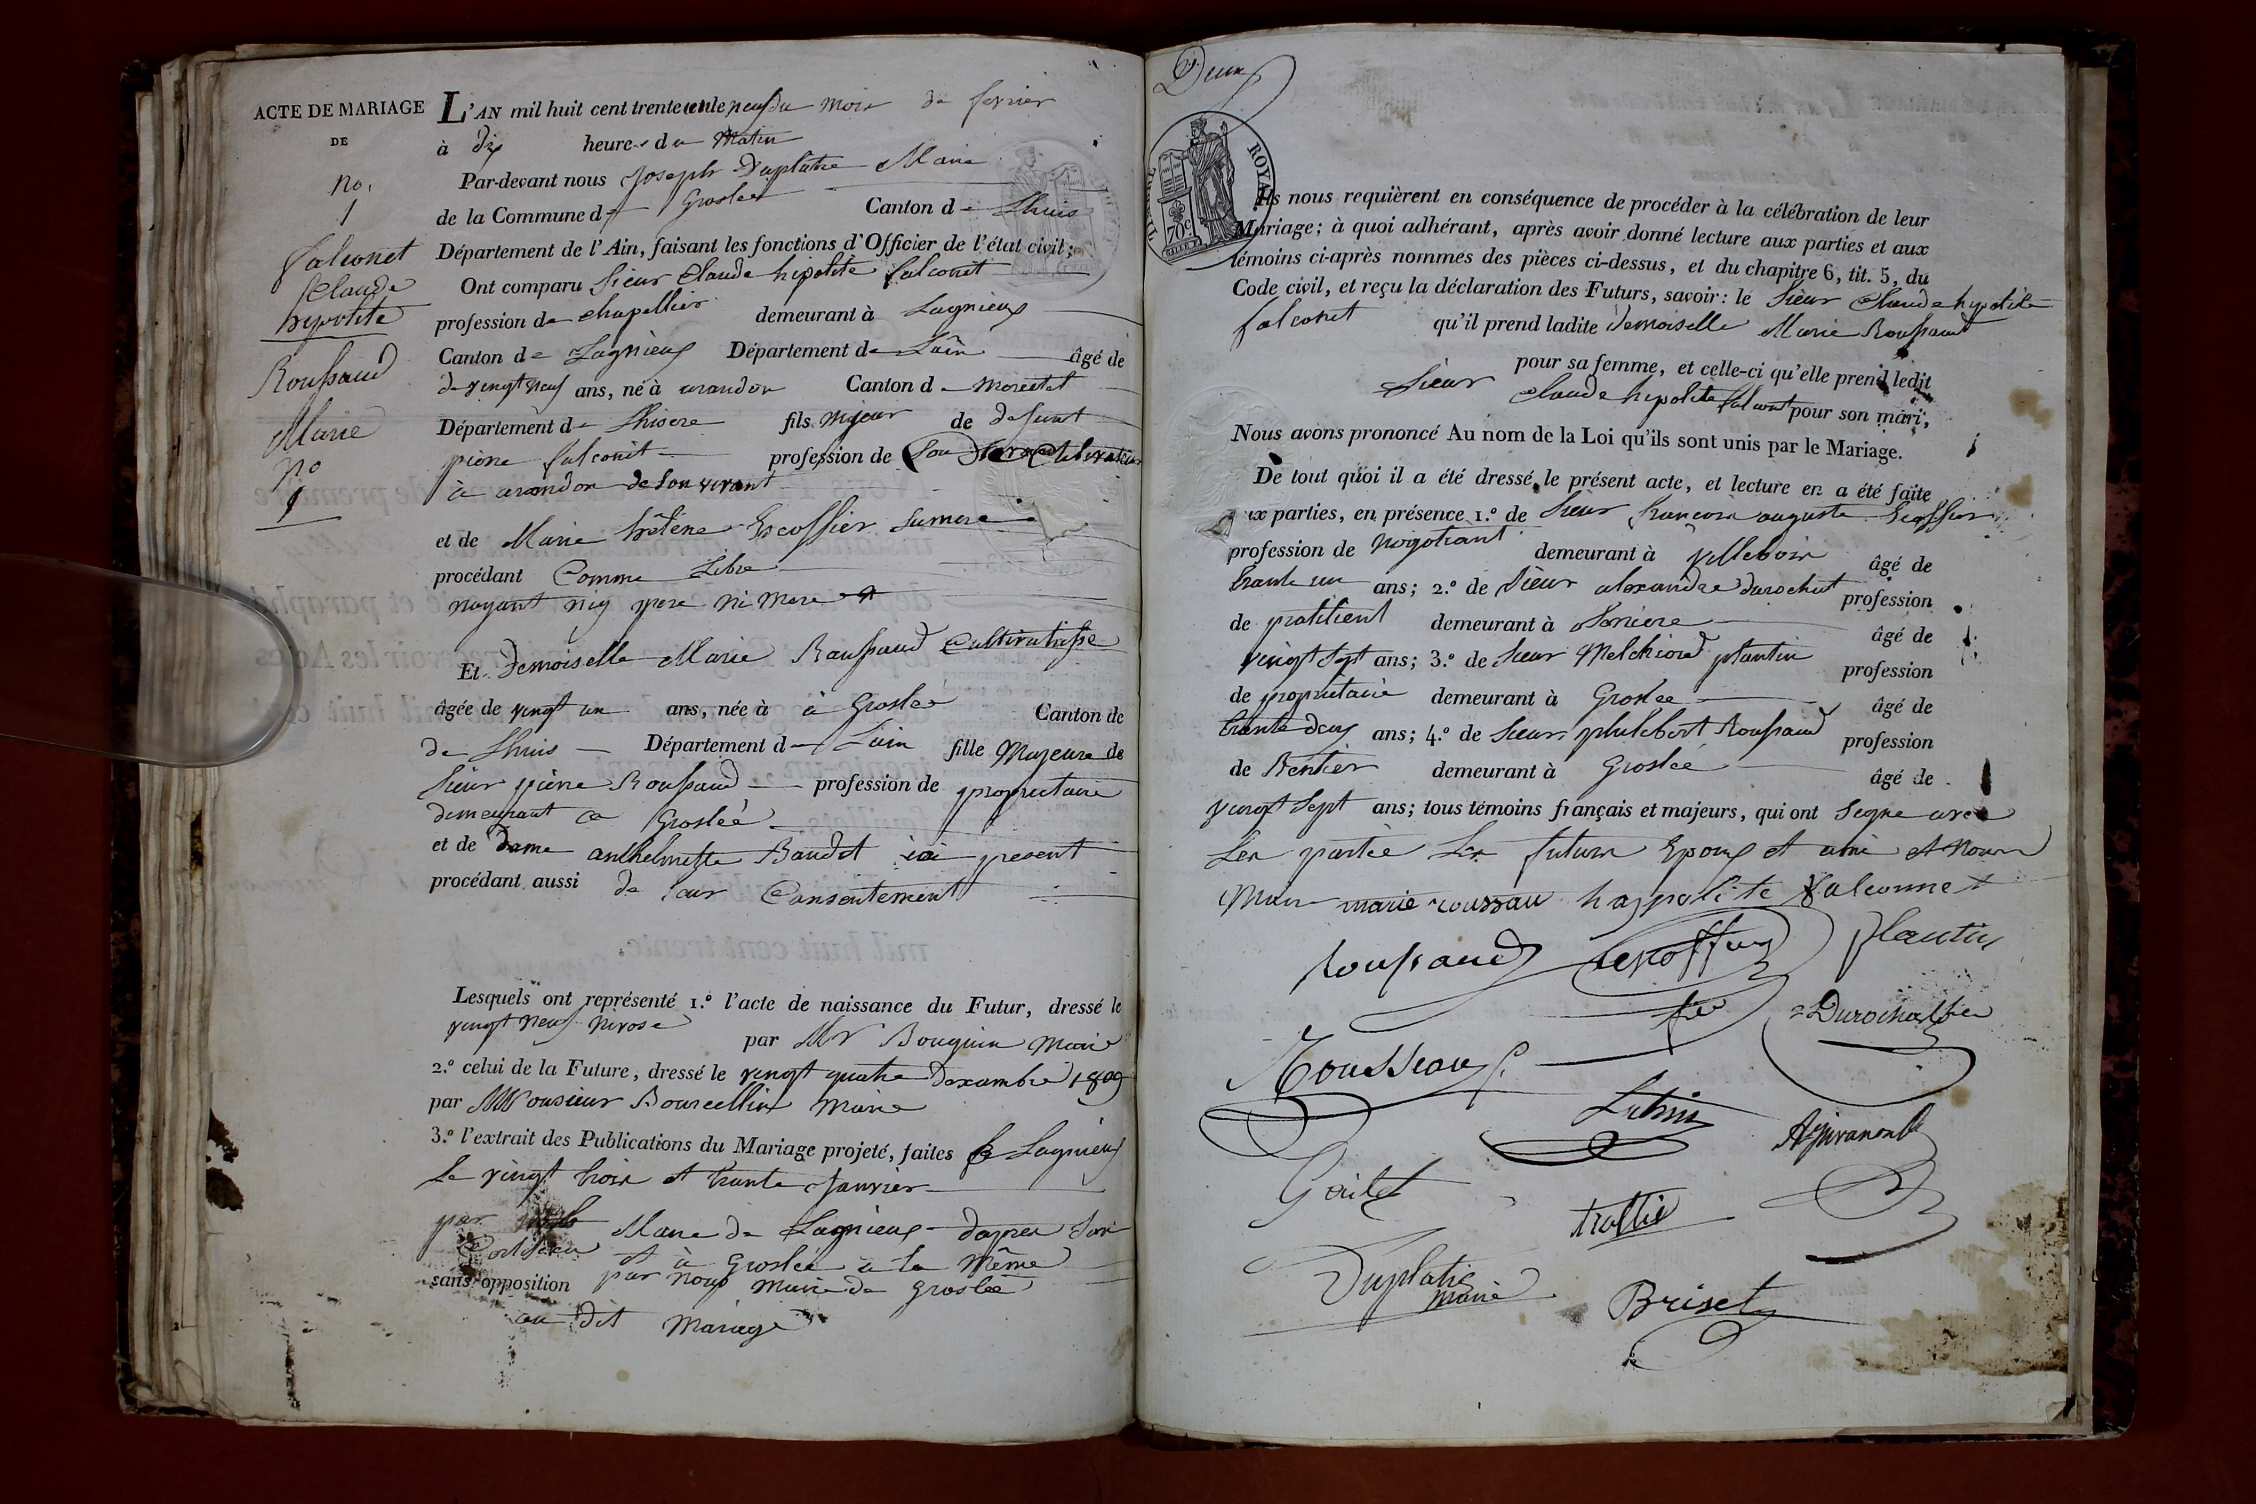 ACTE DE MARIAGE
DE
No.
1
falconet
Claude
hypolite
Roussaud
Marie
No
1
L'AN mil huit cent trente un le neuf du mois de fevrier
à dix heures du Matin
Par-devant nous Joseph Duplatre Maire
de la Commune de Groslée Canton de Lhuis
Département de l'Ain, faisant les fonctions d'Officier de l'état civil;
Ont comparu Sieur Claude hipolite falconet
profession de chapellier demeurant à Lagnieux
Canton de Lagnieux Département de Lain âgé de
de vingt neuf ans, né à arandon Canton de morestel
Département de Lhisere fils Majeur de defunt
pierre falconet profession de cultivateur
à arandon de son vivant
et de Marie hélène Escoffier sa mere
procédant Comme Libre
nayant ni pere ni mere
Et demoiselle Marie Roussaud Cultivatrisse
âgée de vingt un ans, née à à Groslée Canton de
de Lhuis Département de Lain fille Majeure de
sieur pierre Roussaud profession de proprietaire
demeurant a Groslée
et de Dame anthelmette Baudet ici present
procédant aussi de leur Consentement
Lesquels ont représenté 1.º l'acte de naissance du Futur, dressé le
vingt neuf Nivose par Mr Bouquin Maire
2.º celui de la Future, dressé le vingt quatre Dexambre 1809
par Monsieur Bourcellin Maire
3.º l'extrait des Publications du Mariage projeté, faites Lagnieux
Le vingt trois et trente Janvier
par Maire de Lagnieux dapres son
et à Groslée a la Même
sans opposition par nous Maire de Groslée
au dit Mariage
Deux
TIMBRE ROYAL
70c
Ils nous requièrent en conséquence de procéder à la célébration de leur
Mariage; à quoi adhérant, après avoir donné lecture aux parties et aux
témoins ci-après nommés des pièces ci-dessus, et du chapitre 6, tit. 5, du
Code civil, et reçu la déclaration des Futurs, savoir: le Sieur Claude hypolite
falconet qu'il prend ladite demoiselle Marie Roussaud
pour sa femme, et celle-ci qu'elle prend ledit
Sieur Claude hipolite falconet pour son mari;
Nous avons prononcé Au nom de la Loi qu'ils sont unis par le Mariage.
De tout quoi il a été dressé le présent acte, et lecture en a été faite
ux parties, en présence 1.º de Sieur francois auguste Escoffier
profession de negotiant demeurant à Villebois âgé de
trante un ans; 2.º de Sieur alexandre durochat profession
de pratitient demeurant à Soriere âgé de
vingt sept ans; 3.º de sieur Melchiord plantin profession
de propriétaire demeurant à Groslée âgé de
trante deux ans; 4.º de sieur philebert Roussaud profession
de Rentier demeurant à Groslée âgé de
vingt sept ans; tous témoins français et majeurs, qui ont signe avec
Les partie Les futurs Epoux et ami et nous
Maire marie roussau hyppolite falconnet
Roussaud Escoffier Plantin
Durochat
Rousseau
Goulet trollié
Duplatre
Maire Brizet